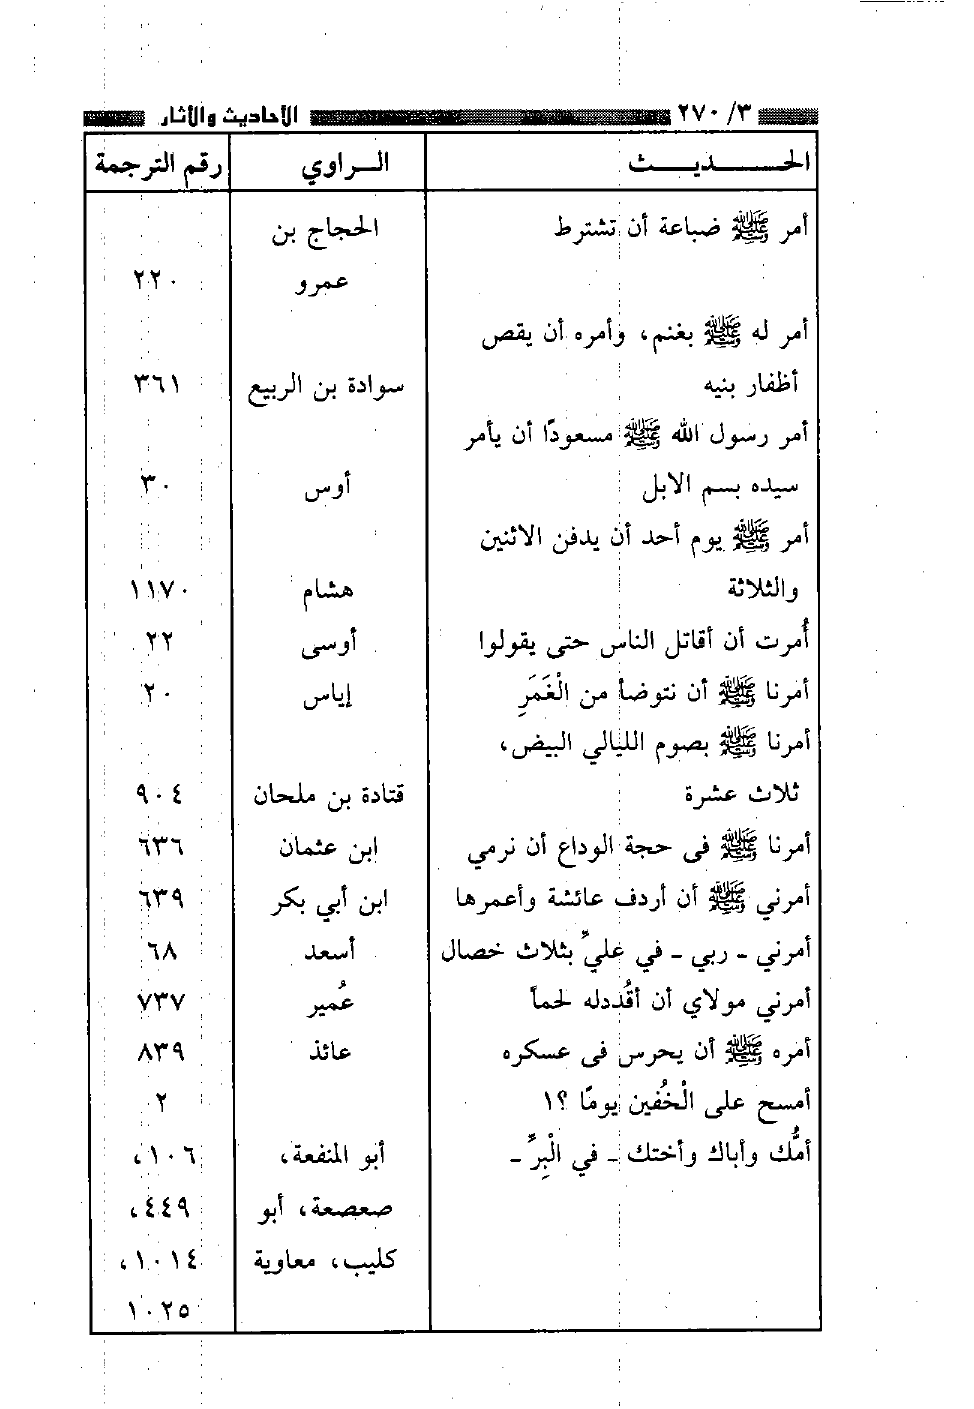 ٣/ ٢٧٠ الأحاديث والأثار
الحـــديـــث الـــراوي رقم الترجمة
أمر ﷺ ضباعة أن تشترط الحجاج بن
عمرو ٢٢٠
أمر له ﷺ بغنم، وأمره أن يقص
أظفار بنيه سوادة بن الربيع ٣٦١
أمر رسول الله ﷺ مسعودًا أن يأمر
سيده بسم الابل أوس ٣٠
أمر ﷺ يوم أحد أن يدفن الاثنين
والثلاثة هشام ١١٧٠
أُمرت أن أقاتل الناس حتى يقولوا أوسى ٢٢
أمرنا ﷺ أن نتوضأ من الْغَمَرِ إياس ٢٠
أمرنا ﷺ بصوم الليالي البيض،
ثلاث عشرة قتادة بن ملحان ٩٠٤
أمرنا ﷺ فى حجة الوداع أن نرمي ابن عثمان ٦٣٦
أمرني ﷺ أن أردف عائشة وأعمرها ابن أبي بكر ٦٣٩
أمرني - ربي - في عليٍّ بثلاث خصال أسعد ٦٨
أمرني مولاي أن أقُددله لحماً عُمير ٧٣٧
أمره ﷺ أن يحرس فى عسكره عائذ ٨٣٩
أمسح على الْخُفين يومًا ؟! ٢
أمُّك وأباك وأختك - في الْبِرِّ - أبو المنفعة، ١٠٦،
صعصعة، أبو ٤٤٩،
كليب، معاوية ١٠١٤،
١٠٢٥